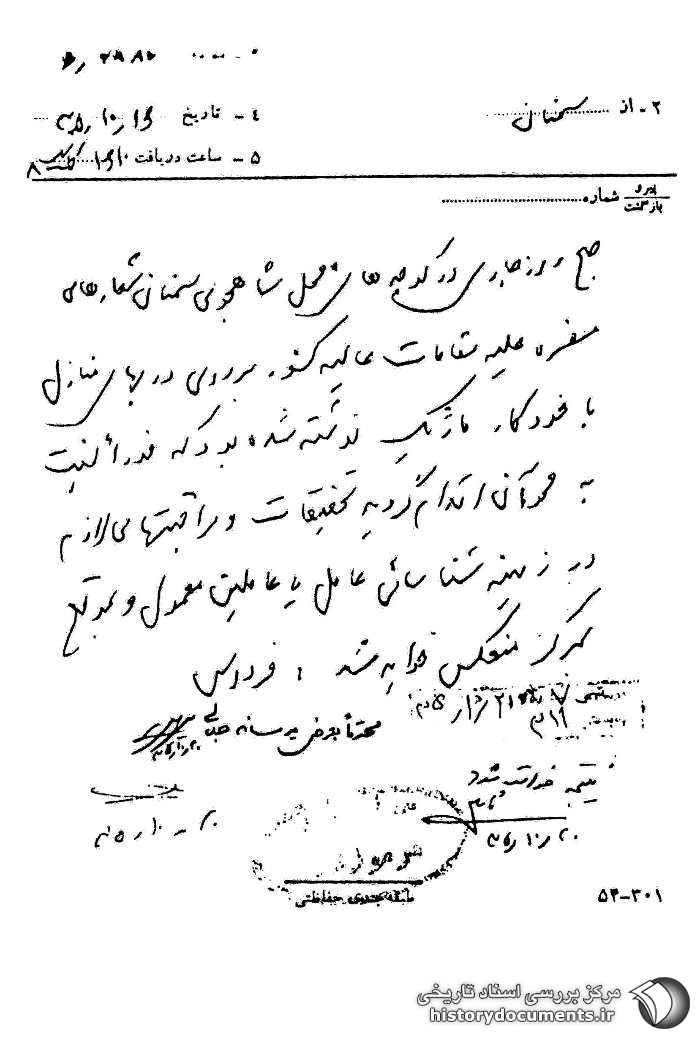 ۲ - از سمنان
۴ - تاریخ
۵ - ساعت دریافت
پیرو
بازگشت
شماره
صبح روز جاری در کوچه های محل شاهجوی سمنان شعارهای
مضره علیه مقامات عالیه کشور بر روی دربهای منازل
با خودکار ماژیک نوشته شده بود که فوراً نسبت
به محو آن اقدام گردید تحقیقات و مراقبتهای لازم
در زمینه شناسائی عامل یا عاملین معمول و بموقع
بمرکز منعکس خواهد شد . فردوس
محترماً بعرض میرساند
نتیجه خواسته شود
طبقه بندی حفاظتی
۵۴-۳۰۱
مرکز بررسی اسناد تاریخی
historydocuments.ir